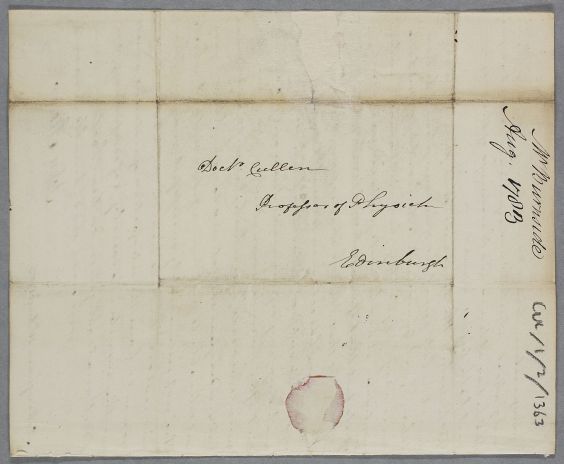 Doctr Cullen
Professor of Physick
Edinburgh
Mr Burnside
Aug. 1783
CUL/1/2/1363